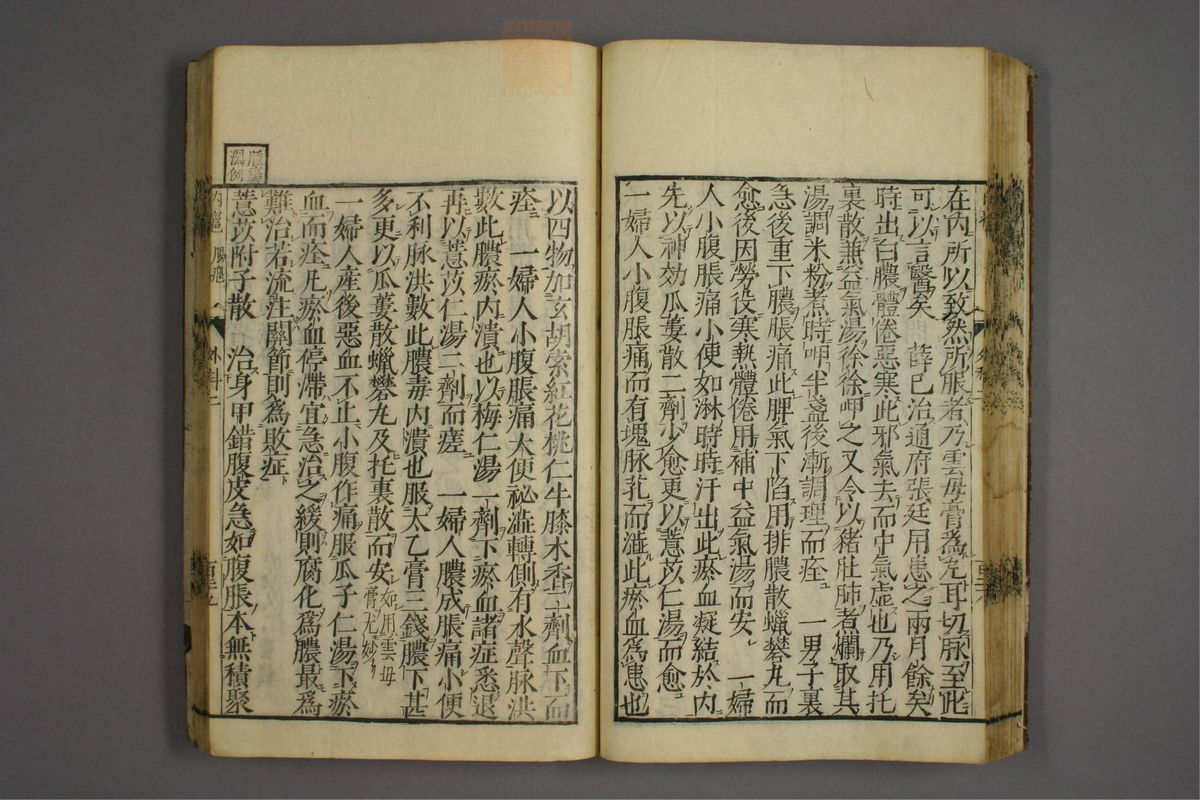 在内所以致然所服者乃雲母膏為丸耳切脉至此
可以言醫矣　薛已治通府張廷用患之兩月餘矣
時出白膿體倦惡寒此邪氣去而中氣虚也乃用托
裏散兼益氣湯徐徐呷之又令以猪肚肺煮爛取其
湯調米粉煮時呷半盞後漸調理而痊　一男子裏
急後重下膿脹痛此脾氣下陷用排膿散蠟礬丸而
愈後因勞役寒熱體倦用補中益氣湯而安　一婦
人小腹脹痛小便如淋時時汗出此瘀血凝結於内
先以神効瓜蔞散二劑少愈更以薏苡仁湯而愈
一婦人小腹脹痛而有塊脉芤而澁此瘀血為患也
以四物加玄胡索紅花桃仁牛膝木香二劑血下而
痊　一婦人小腹脹痛大便祕澁轉側有水聲脉洪
數此膿瘀内潰也以梅仁湯一劑下瘀血諸症悉退
再以薏苡仁湯二劑而瘥　一婦人膿成脹痛小便
不利脉洪數此膿毒内潰也服太乙膏三錢膿下甚
多更以瓜蔞散蠟礬丸及托裏散而安如用雲母膏尤妙
一婦人産後惡血不止小腹作痛服瓜子仁湯下瘀
血而痊凡瘀血停滯宜急治之緩則腐化為膿最為
難治若流注關節則為敗症
薏苡附子散　治身甲錯腹皮急如腹脹本無積聚
内癰　腸癰
外科二